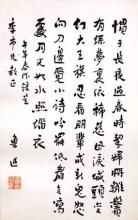 慣于長夜過春時挈婦將雛鬢
有絲夢裏依稀慈母淚城頭變
幻大王旗眼看朋輩成新鬼怒
向刀邊覓小詩吟罷低眉無寫
處月光如水照緇衣
午年春作錄呈
季市兄教正
魯迅